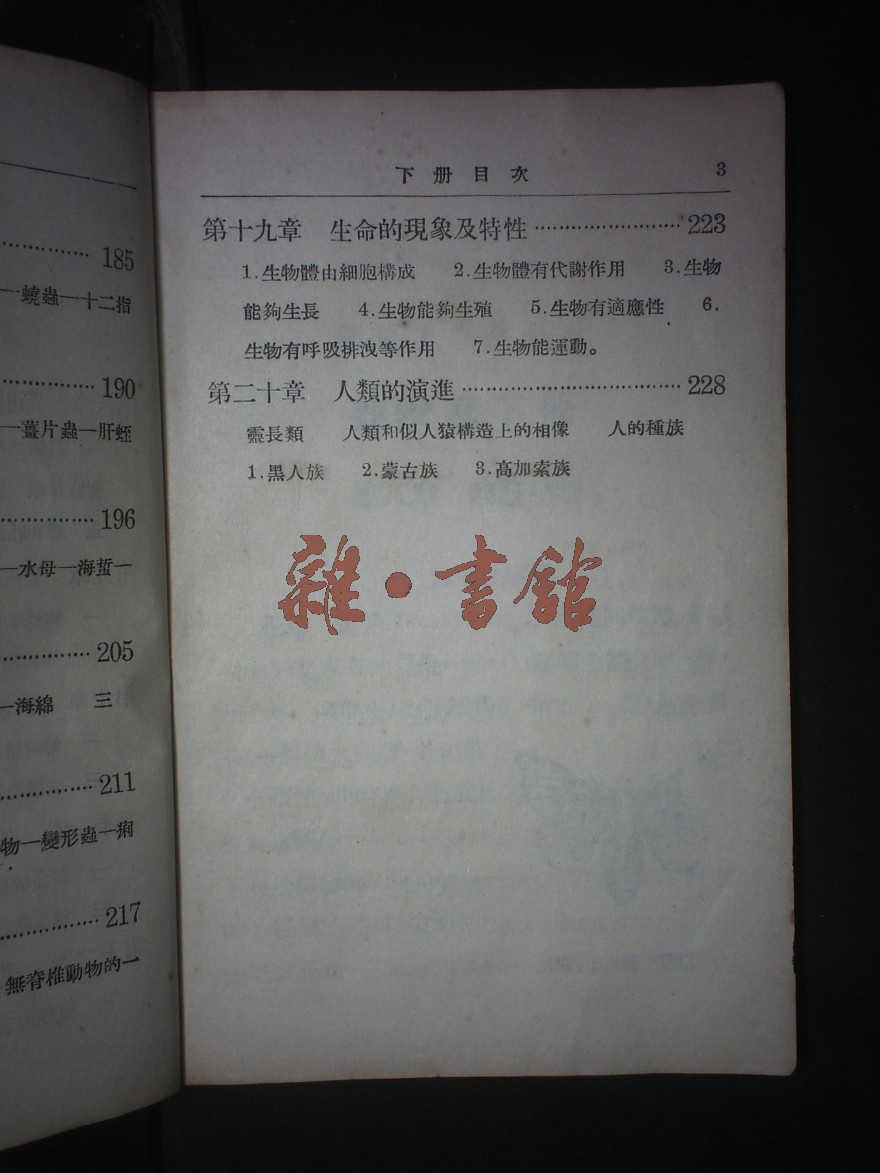 185
一蟯蟲一十二指
190
一薑片蟲一肝蛭
196
一水母一海蜇一
205
一海綿 三
211
物一變形蟲一痢
217
無脊椎動物的一
下册目次 3
第十九章 生命的現象及特性 223
1.生物體由細胞構成 2.生物體有代謝作用 3.生物
能夠生長 4.生物能夠生殖 5.生物有適應性 6.
生物有呼吸排洩等作用 7.生物能運動。
第二十章 人類的演進 228
靈長類 人類和似人猿構造上的相像 人的種族
1.黑人族 2.蒙古族 3.高加索族
雜·書館